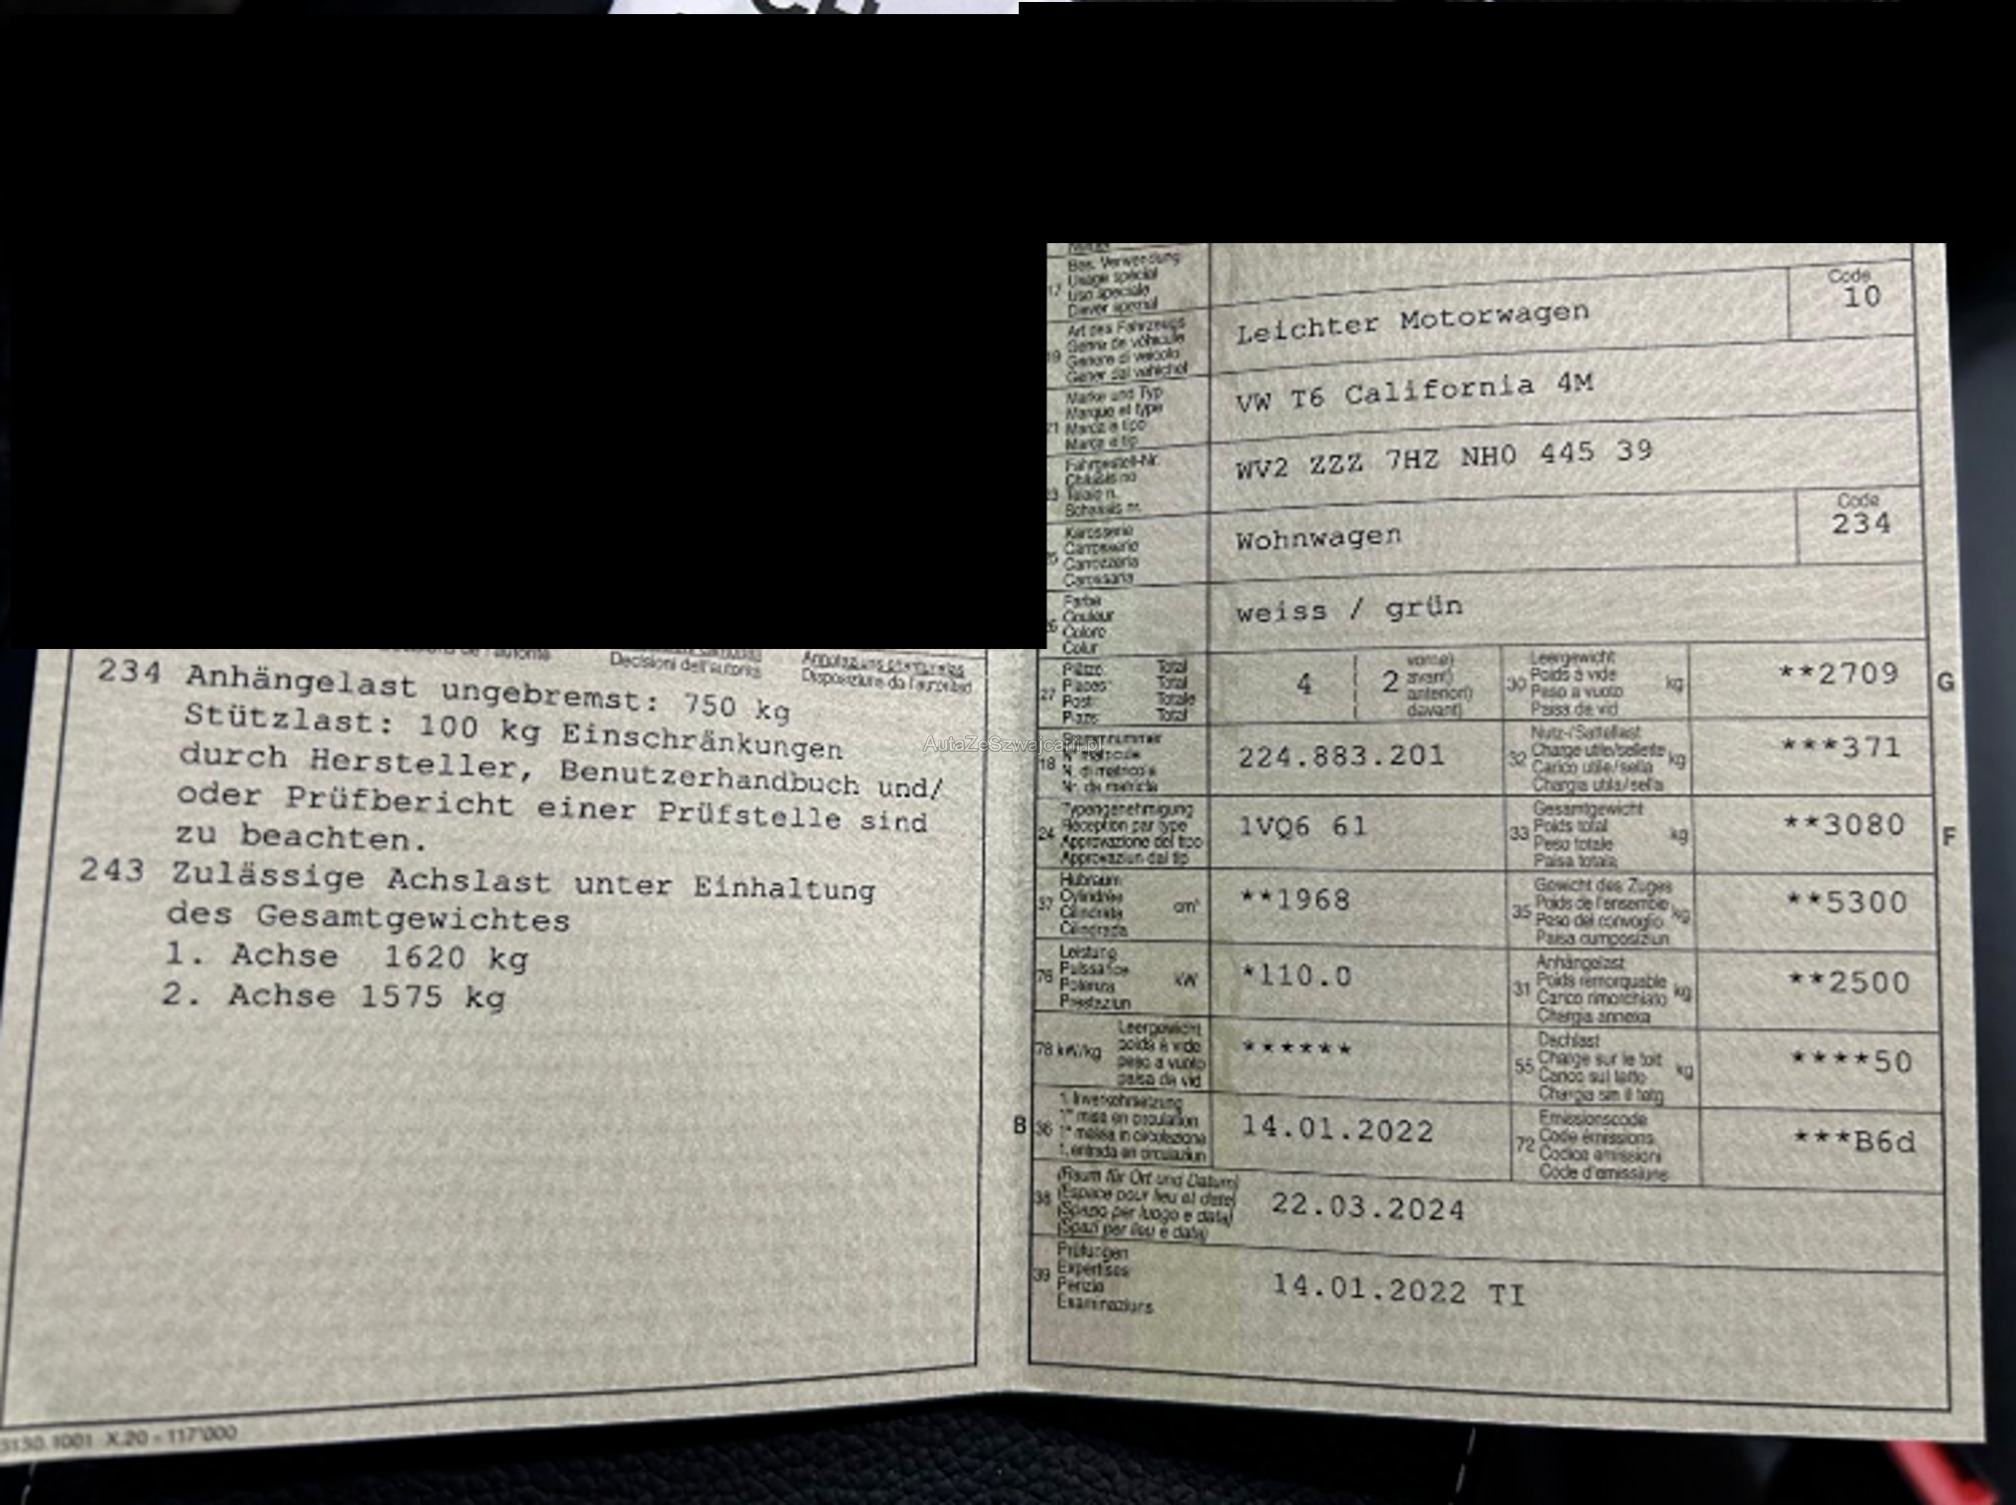 CH
17 Bes. Verwendung
Usage spécial
Uso speciale
Diever spezial
19 Art des Fahrzeugs
Genre de véhicule
Genere di veicolo
Gener dal vehichel
Leichter Motorwagen
Code
10
21 Marke und Typ
Marque et type
Marca e tipo
Marca e tip
VW T6 California 4M
23 Fahrgestell-Nr.
Châssis no
Telaio n.
Schassis nr.
WV2 ZZZ 7HZ NH0 445 39
25 Karosserie
Carrosserie
Carrozzeria
Carossaria
Wohnwagen
Code
234
26 Farbe
Couleur
Colore
Colur
weiss / grün
Decisioni dell'autorità
Disposiziuns da l'autoritad
234 Anhängelast ungebremst: 750 kg
Stützlast: 100 kg Einschränkungen
durch Hersteller, Benutzerhandbuch und/
oder Prüfbericht einer Prüfstelle sind
zu beachten.
243 Zulässige Achslast unter Einhaltung
des Gesamtgewichtes
1. Achse 1620 kg
2. Achse 1575 kg
27 Plätze: Total
Places: Total
Posti: Totale
Plazs: Total
4 2 vorne)
avant)
anteriori)
davant)
30 Leergewicht
Poids à vide
Peso a vuoto
Paisa da vid
kg
**2709
G
18 Stammnummer
N° matricule
N. di matricola
Nr. da matricla
224.883.201
32 Nutz-/Sattellast
Charge utile/sellette
Carico utile/sella
Chargia utila/sella
kg
***371
24 Typengenehmigung
Réception par type
Approvazione del tipo
Approvaziun dal tip
1VQ6 61
33 Gesamtgewicht
Poids total
Peso totale
Paisa totala
kg
**3080
F
37 Hubraum
Cylindrée
Cilindrata
Cilindrada
cm³
**1968
35 Gewicht des Zuges
Poids de l'ensemble
Peso del convoglio
Paisa cumposiziun
kg
**5300
76 Leistung
Puissance
Potenza
Prestaziun
kW
*110.0
31 Anhängelast
Poids remorquable
Carico rimorchiato
Chargia annexa
kg
**2500
78 kW/kg Leergewicht
poids à vide
peso a vuoto
paisa da vid
******
55 Dachlast
Charge sur le toit
Carico sul tetto
Chargia sin il tetg
kg
****50
B 36 1. Inverkehrsetzung
1re mise en circulation
1a messa in circolazione
1. entrada en circulaziun
14.01.2022
72 Emissionscode
Code émissions
Codice emissioni
Code d'emissiuns
***B6d
38 (Raum für Ort und Datum)
(Espace pour lieu et date)
(Spazio per luogo e data)
(Spazi per lieu e data)
22.03.2024
39 Prüfungen
Expertises
Perizie
Examinaziuns
14.01.2022 TI
3150.1001 X.20 - 117'000
AutaZeSzwajcarii.pl